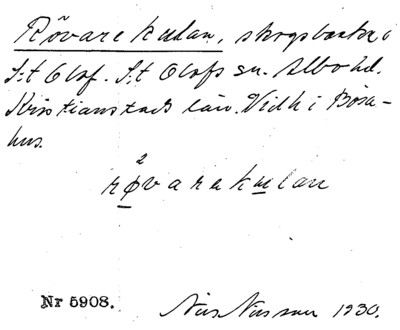 Rövarekulan, skogsbacke i
S:t Olof. S:t Olofs sn. Albo hd.
Kristianstads län. Vidh i Bosa-
hus.
2
røvarakulan
Nr 5908. Nils Nilsson 1930.